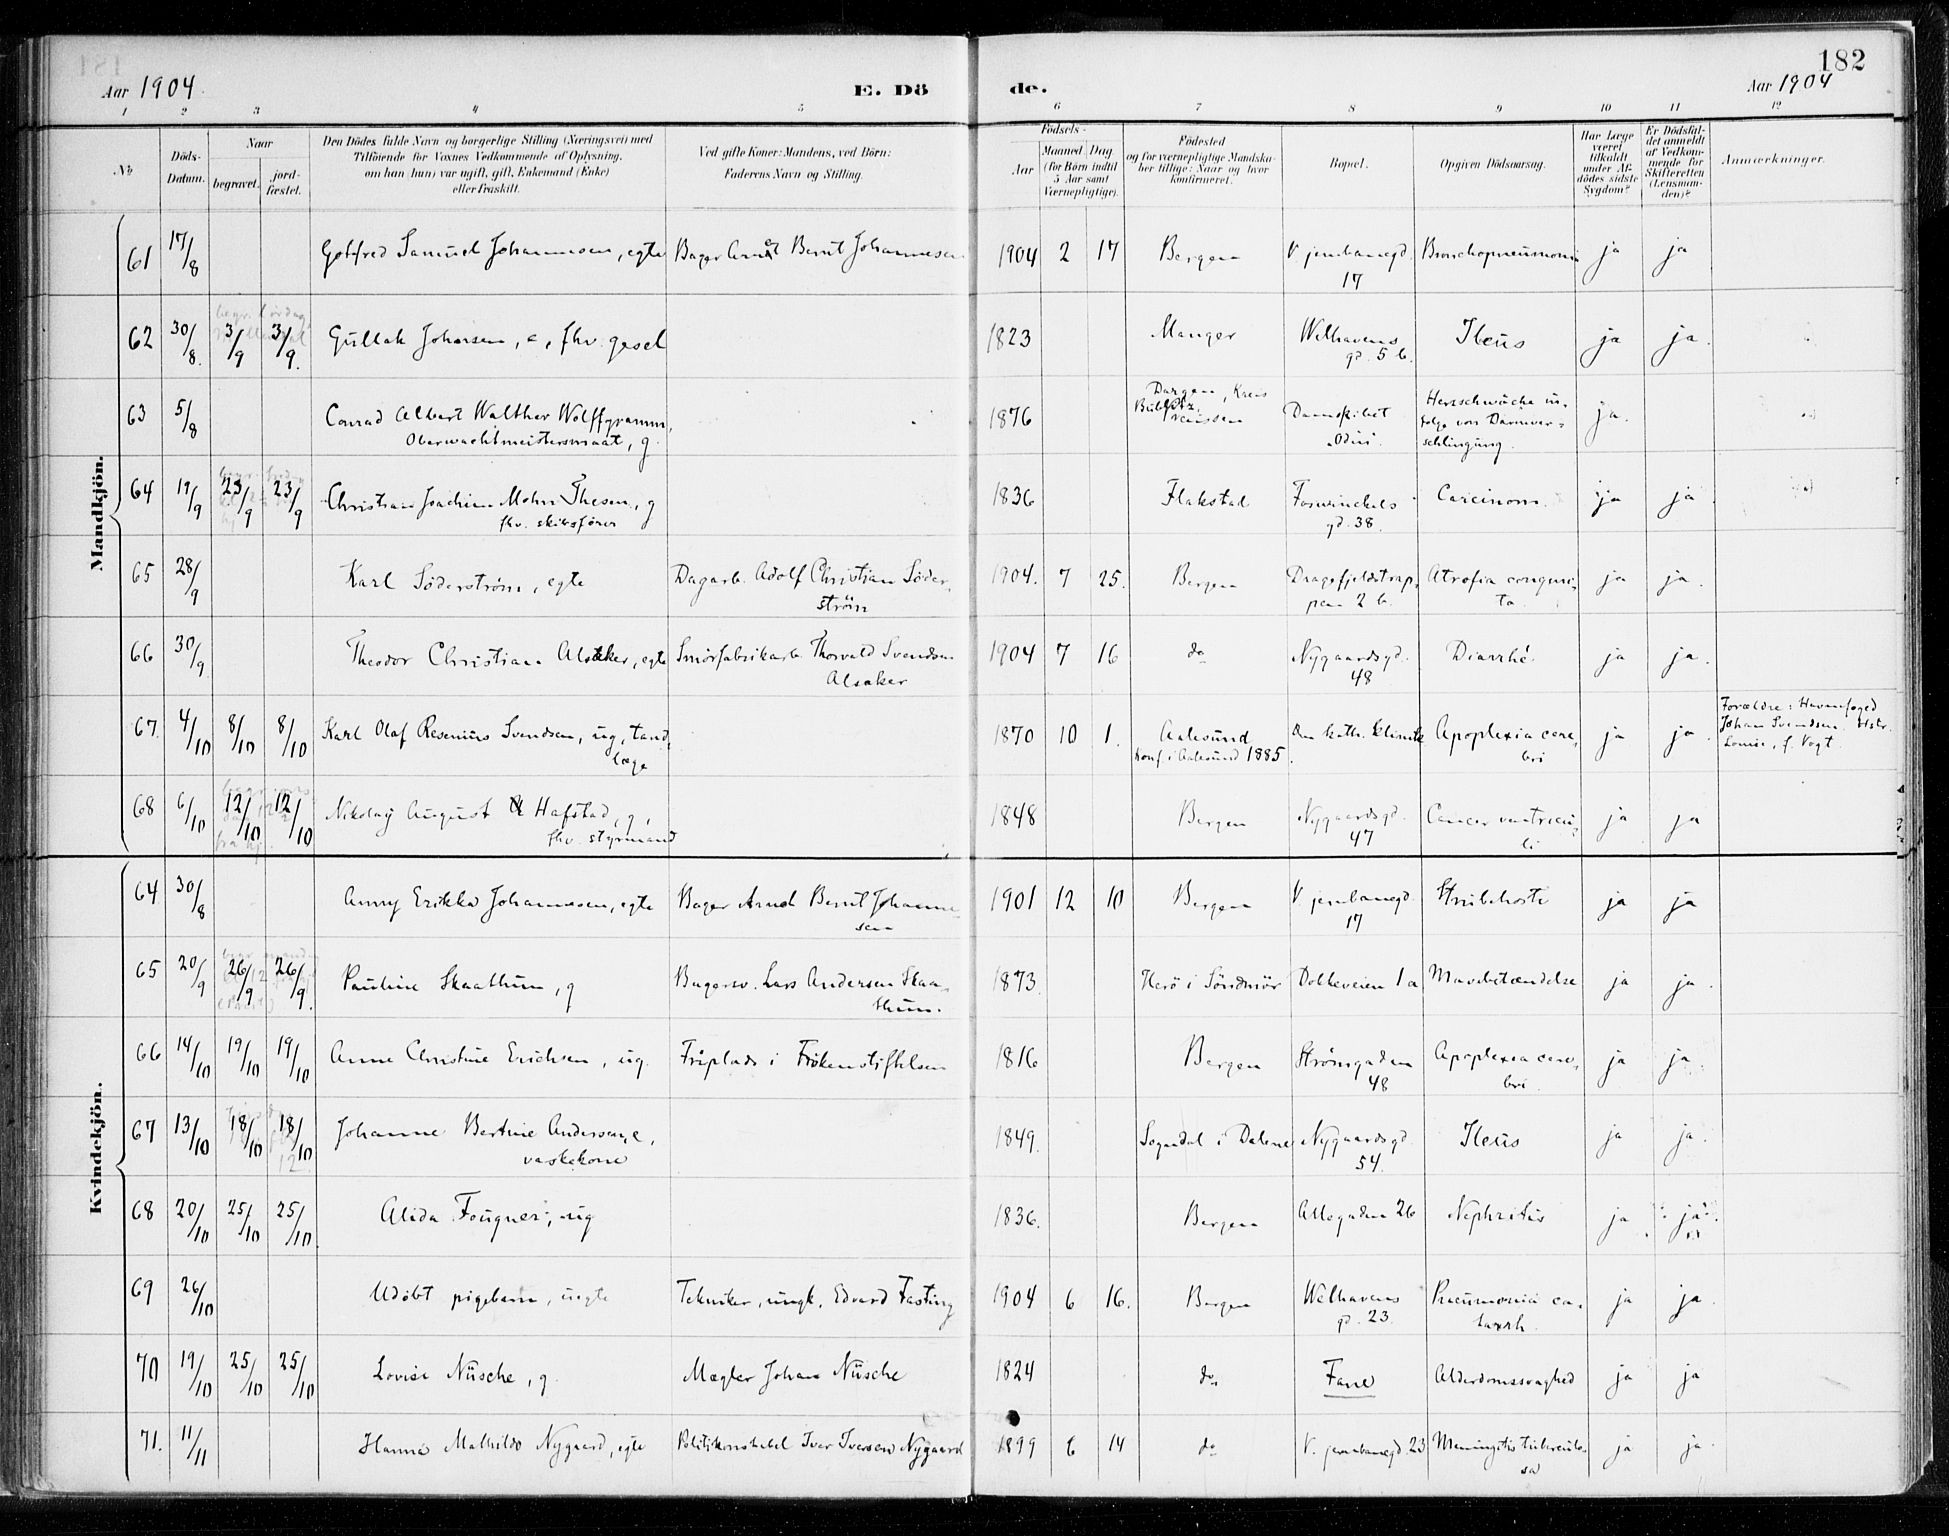 182
Aar 1904. E. Dö de. Aar 1904
1 2 3 4 5 6 7 8 9 10 11 12
Nº
Döds-Datum.
Naar
begravet.
jordfæstet.
Den Dödes fulde Navn og borgerlige Stilling (Næringsvei) med
Tilföiende for Voxnes Vedkommende af Oplysning,
om han (hun) var ugift, gift, Enkemand (Enke)
eller fraskilt.
Ved gifte Koner: Mandens, ved Börn:
Faderens Navn og Stilling.
Födsels-
Aar
Maaned. Dag.
(for Börn indtil
5 Aar samt
Værnepligtige).
Födested
og for værnepligtige Mandskaber tillige: Naar og hvor
konfirmeret.
Bopæl.
Opgiven Dödsaarsag.
Har Læge
været
tilkaldt
under Afdödes sidste
Sygdom?
Er Dödsfaldet anmeldt
af Vedkommende for
Skifteretten
(Lensmanden)?
Anmærkninger.
Mandkjön.
61 17/8 Gotfred Samuel Johannesen, egte Bager Arndt Bernt Johannesen 1904 2 17 Bergen V. jernbanegd. 17 Bronchopneumoni ja ja
62 30/8. 3/9 3/9. Gullak Johansen, e, fhv. gesel 1823 Manger Welhavens gd. 5 b. Ileus ja ja.
63 5/8 Conrad Albert Walther Wolffgramm, Oberwachtmeistersmaat, g 1876 Dargen, Kreis Bublitz, Preussen Dampskibet "Odin". Herzschwäche infolge von Darmverschlingung. ja.
64 19/9 23/9 23/9 Christian Joachim Mohr Thesen, g fhv. skibsfører 1836 Flakstad Foswinckels gd. 38. Carcinom. ja ja
65 28/9 Karl Söderström, egte Dagarb. Adolf Christian Söderström 1904. 7 25. Bergen Dragefjeldstrappen 2 b. Atrofia congenita ja ja.
66 30/9. Theodor Christian Alsaker, egte Smörfabrikarb. Thorvald Svendsen Alsaker 1904 7 16 do Nygaardsgd. 48 Diarrhé ja ja.
67. 4/10 8/10 8/10 Karl Olaf Resenius Svendsen, ug, tandlæge 1870 10 1. Aalesund Konf. i Aalesund 1885. Den kath. klinik Apoplexia cerebri ja ja Forældre: Havnefoged Johan Svendsen Hstr. Louise, f. Vogt.
68 6/10 12/10 12/10 Nikolay August Hafstad, g, fhv. styrmand 1848 Bergen Nygaardsgd. 47 Cancer ventriculi ja ja
Kvindekjön.
64 30/8 Anny Erikka Johannesen, egte Bager Arndt Bernt Johannesen 1901 12 10 Bergen V. jernbanegd. 17 Strubehoste ja ja
65 20/9 26/9 26/9. Pauline Skaathun, g Bagersv. Lars Andersen Skaathun. 1873. Herö i Söndmör Dokkeveien 1 a Mavebetændelse ja ja.
66 14/10 19/10 19/10 Anne Christine Erichsen, ug. Friplads i Frökenstiftelsen 1816 Bergen Strömgaden 48 Apoplexia cerebri ja ja
67 13/10 18/10 18/10 Johanne Bertine Andersen, e, vaskekone 1849. Sogndal i Dalene Nygaardsgd. 54. Ileus ja ja.
68 20/10 25/10 25/10. Alida Fougner, ug 1836. Bergen Allegaden 26 Nephritis ja ja
69 26/10 Udöbt pigebarn, uegte Tekniker, ungk. Edvard Fasting 1904 6 16. Bergen Welhavens gd. 23. Pneumonia catarrh. ja ja.
70 19/10 25/10 25/10 Lovise Nüsche, g. Mægler Johan Nüsche 1824 do. Fane Alderdomssvaghed ja ja
71. 11/11 Hanna Mathilde Nygaard, egte Politikonstabel Iver Iversen Nygaard 1899 6 14 do V. jernbanegd. 23 Meningitis tuberculosa ja ja.